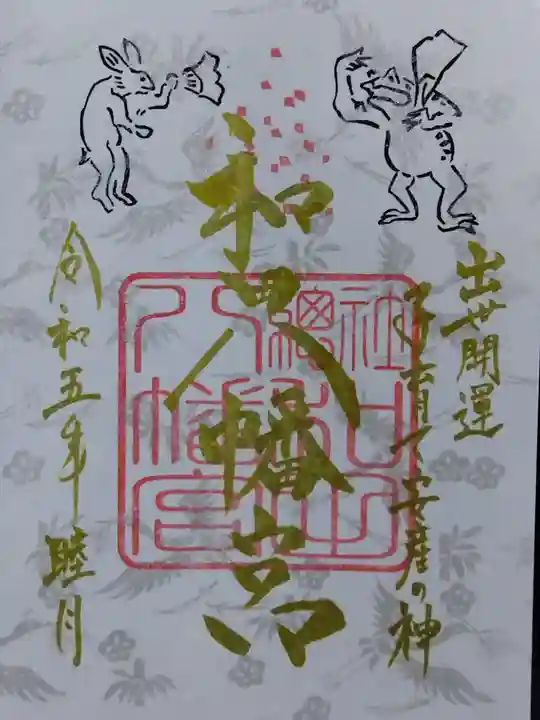 出世開運
子育て安産の神
和田八幡宮
令和五年 睦月
總社
和田
八幡宮